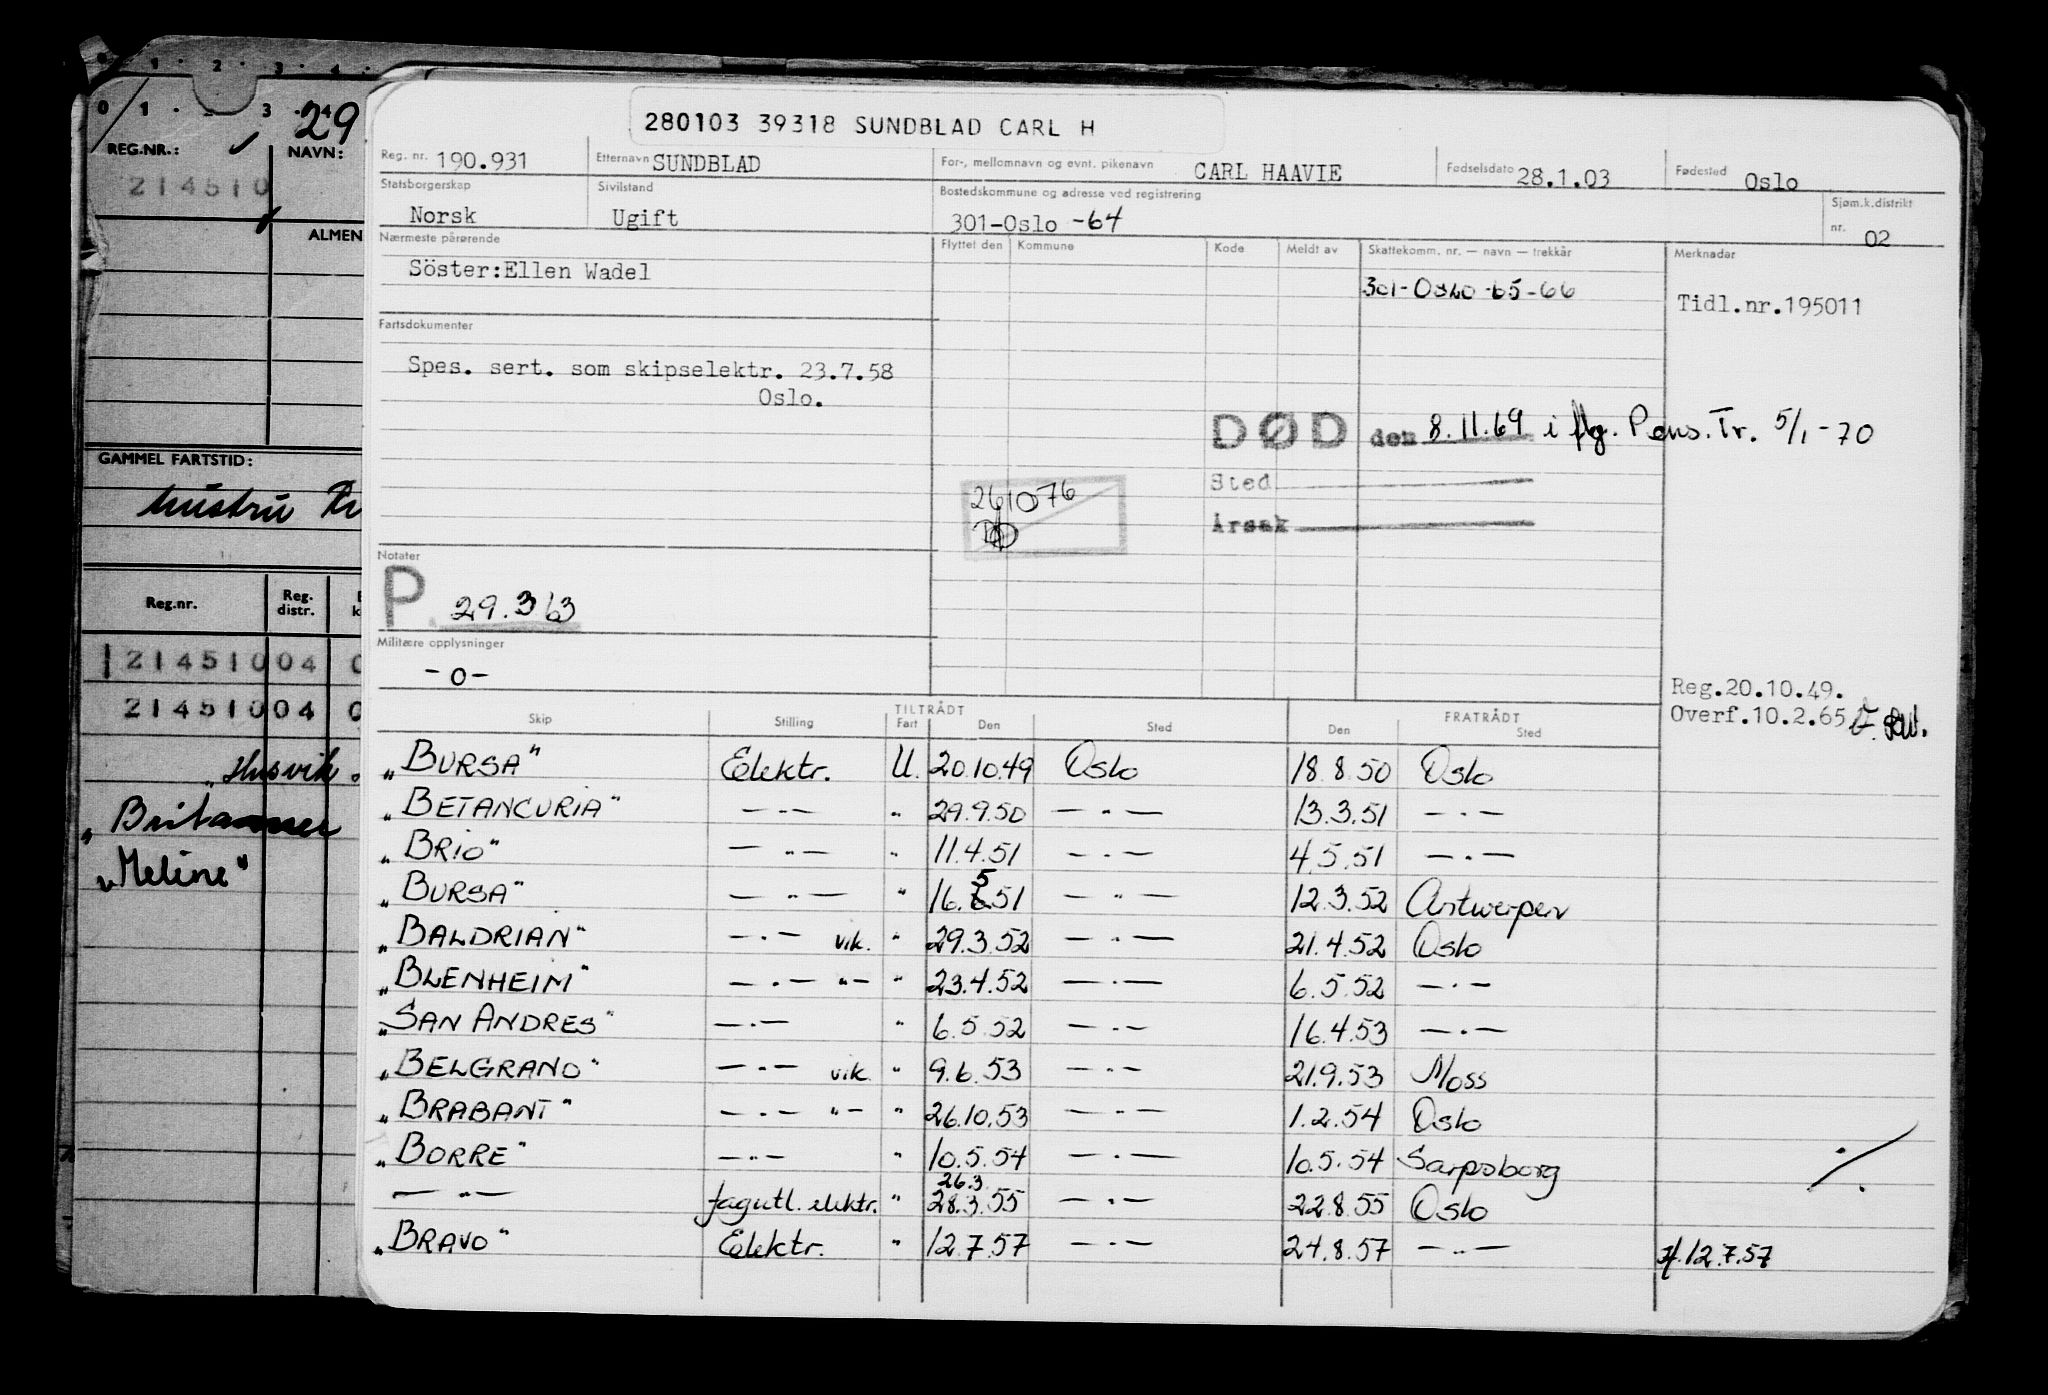 0 1 2 3 4
0 1 3 4
29
REG.NR.: NAVN:
214510
ALMEN
GAMMEL FARTSTID:
Reg.nr. Reg. distr.
2145100 04
2145100 04
"Husvik
"Meline"
280103 39318 SUNDBLAD CARL H
Reg. nr. 190.931 Etternavn SUNDBLAD For-, mellomnavn og evnt. pikenavn CARL HAAVIE Fødselsdato 28.1.03 Fødested Oslo
Statsborgerskap Sivilstand Bostedskommune og adresse ved registrering Sjøm.k.distrikt
Norsk Ugift 301-Oslo -64 nr. 02
Nærmeste pårørende Flyttet den Kommune Kode Meldt av Skattekomm. nr. — navn — trekkår Merknader
Söster:Ellen Wadel 301-Oslo-65-66 Tidl.nr.195011
Fartsdokumenter
Spes. sert. som skipselektr. 23.7.58
Oslo.
DØD den 8.11.69 i flg. Pens.Tr. 5/1-70
Sted
Årsak
261076
Notater
P. 29.3 63
Militære opplysninger
-0-
Reg.20.10.49.
Overf.10.2.65
TILTRÅDT FRATRÅDT
Skip Stilling Fart Den Sted Den Sted
"BURSA" Elektr. U. 20.10.49 Oslo 18.8.50 Oslo
"BETANCURIA" —"— " 29.9.50 —"— 13.3.51 —"—
"BRIO" —"— " 11.4.51 —"— 4.5.51 —"—
"BURSA" —"— " 16.5.51 —"— 12.3.52 Antwerpen
"BALDRIAN" —"— vik. " 29.3.52 —"— 21.4.52 Oslo
"BLENHEIM" —"— "— " 23.4.52 —"— 6.5.52 —"—
"SAN ANDRES" —"— " 6.5.52 —"— 16.4.53 —"—
"BELGRANO" —"— vik. " 9.6.53 —"— 21.9.53 Moss
"BRABANT" —"— "— " 26.10.53 —"— 1.2.54 Oslo
"BORRE" —"— " 10.5.54 —"— 10.5.54 Sarpsborg
26.3.
—"— fagutl. elektr. " 28.3.55 —"— 22.8.55 Oslo
"BRAVO" Elektr. " 12.7.57 —"— 24.8.57 —"— 12.7.57